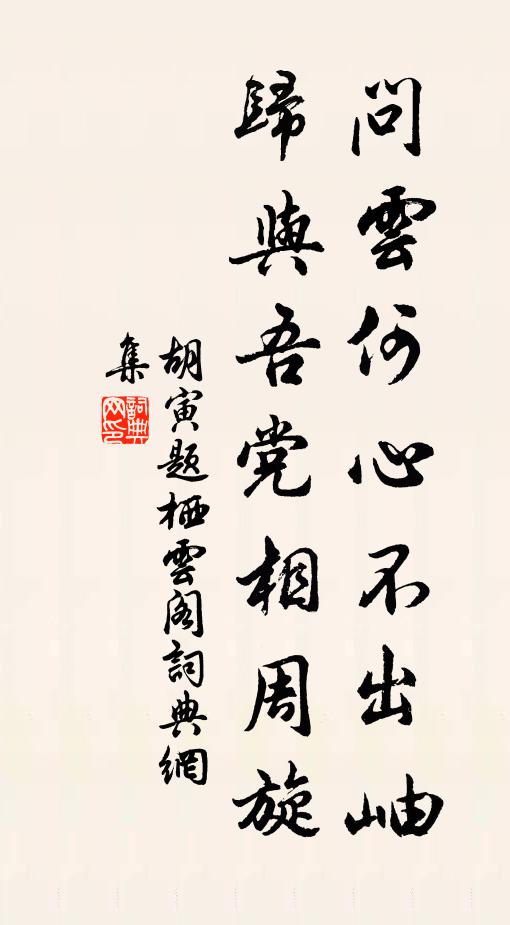 問雲何心不出岫
歸與吾党相周旋
胡寅題栖雲閣詞典網
集
詞典
网印